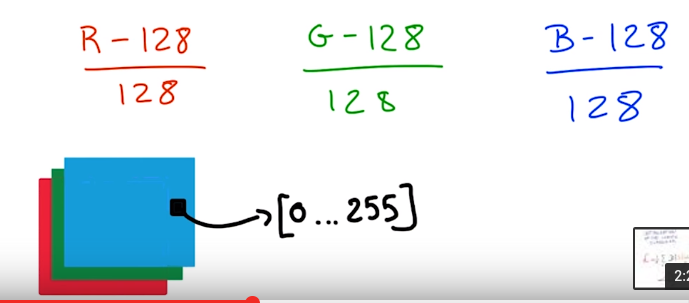 R - 128 G - 128 B - 128
128 128 128
[0 ... 255]